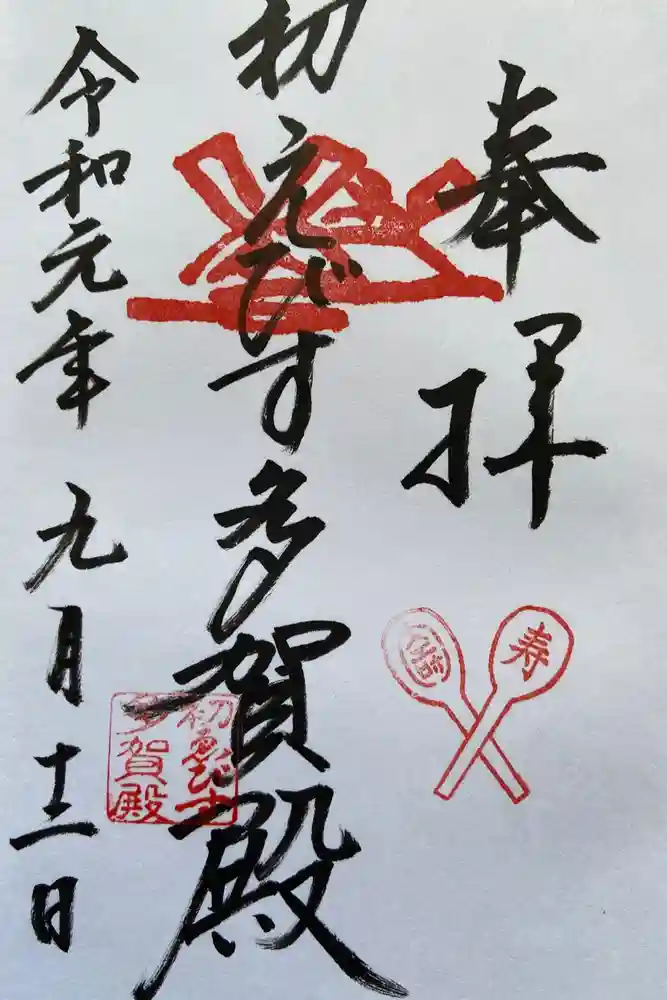 奉拝
初えびす多賀殿
令和元年 九月十二日
寿
初ゑびす
多賀殿